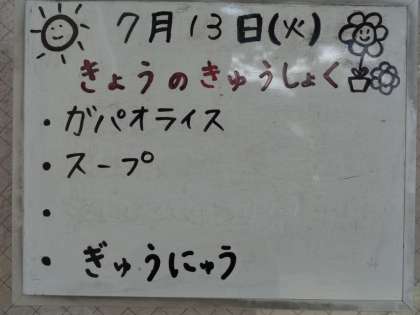 7月13日(火)
きょうのきゅうしょく
・ガパオライス
・スープ
・
・ぎゅうにゅう